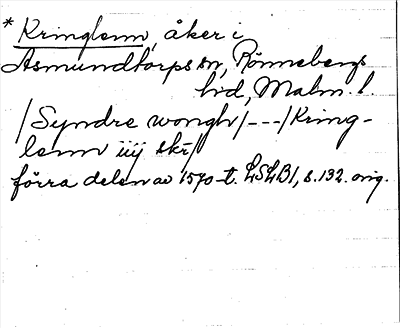 * Kringlenn, åker i
Asmundtorps sn, Rönnebergs
hd, Malm. l.
/Syndre wongh/---/Kring-
lenn iiij skr/
förra delen av 1570-t. LSLB1, s. 132. orig.